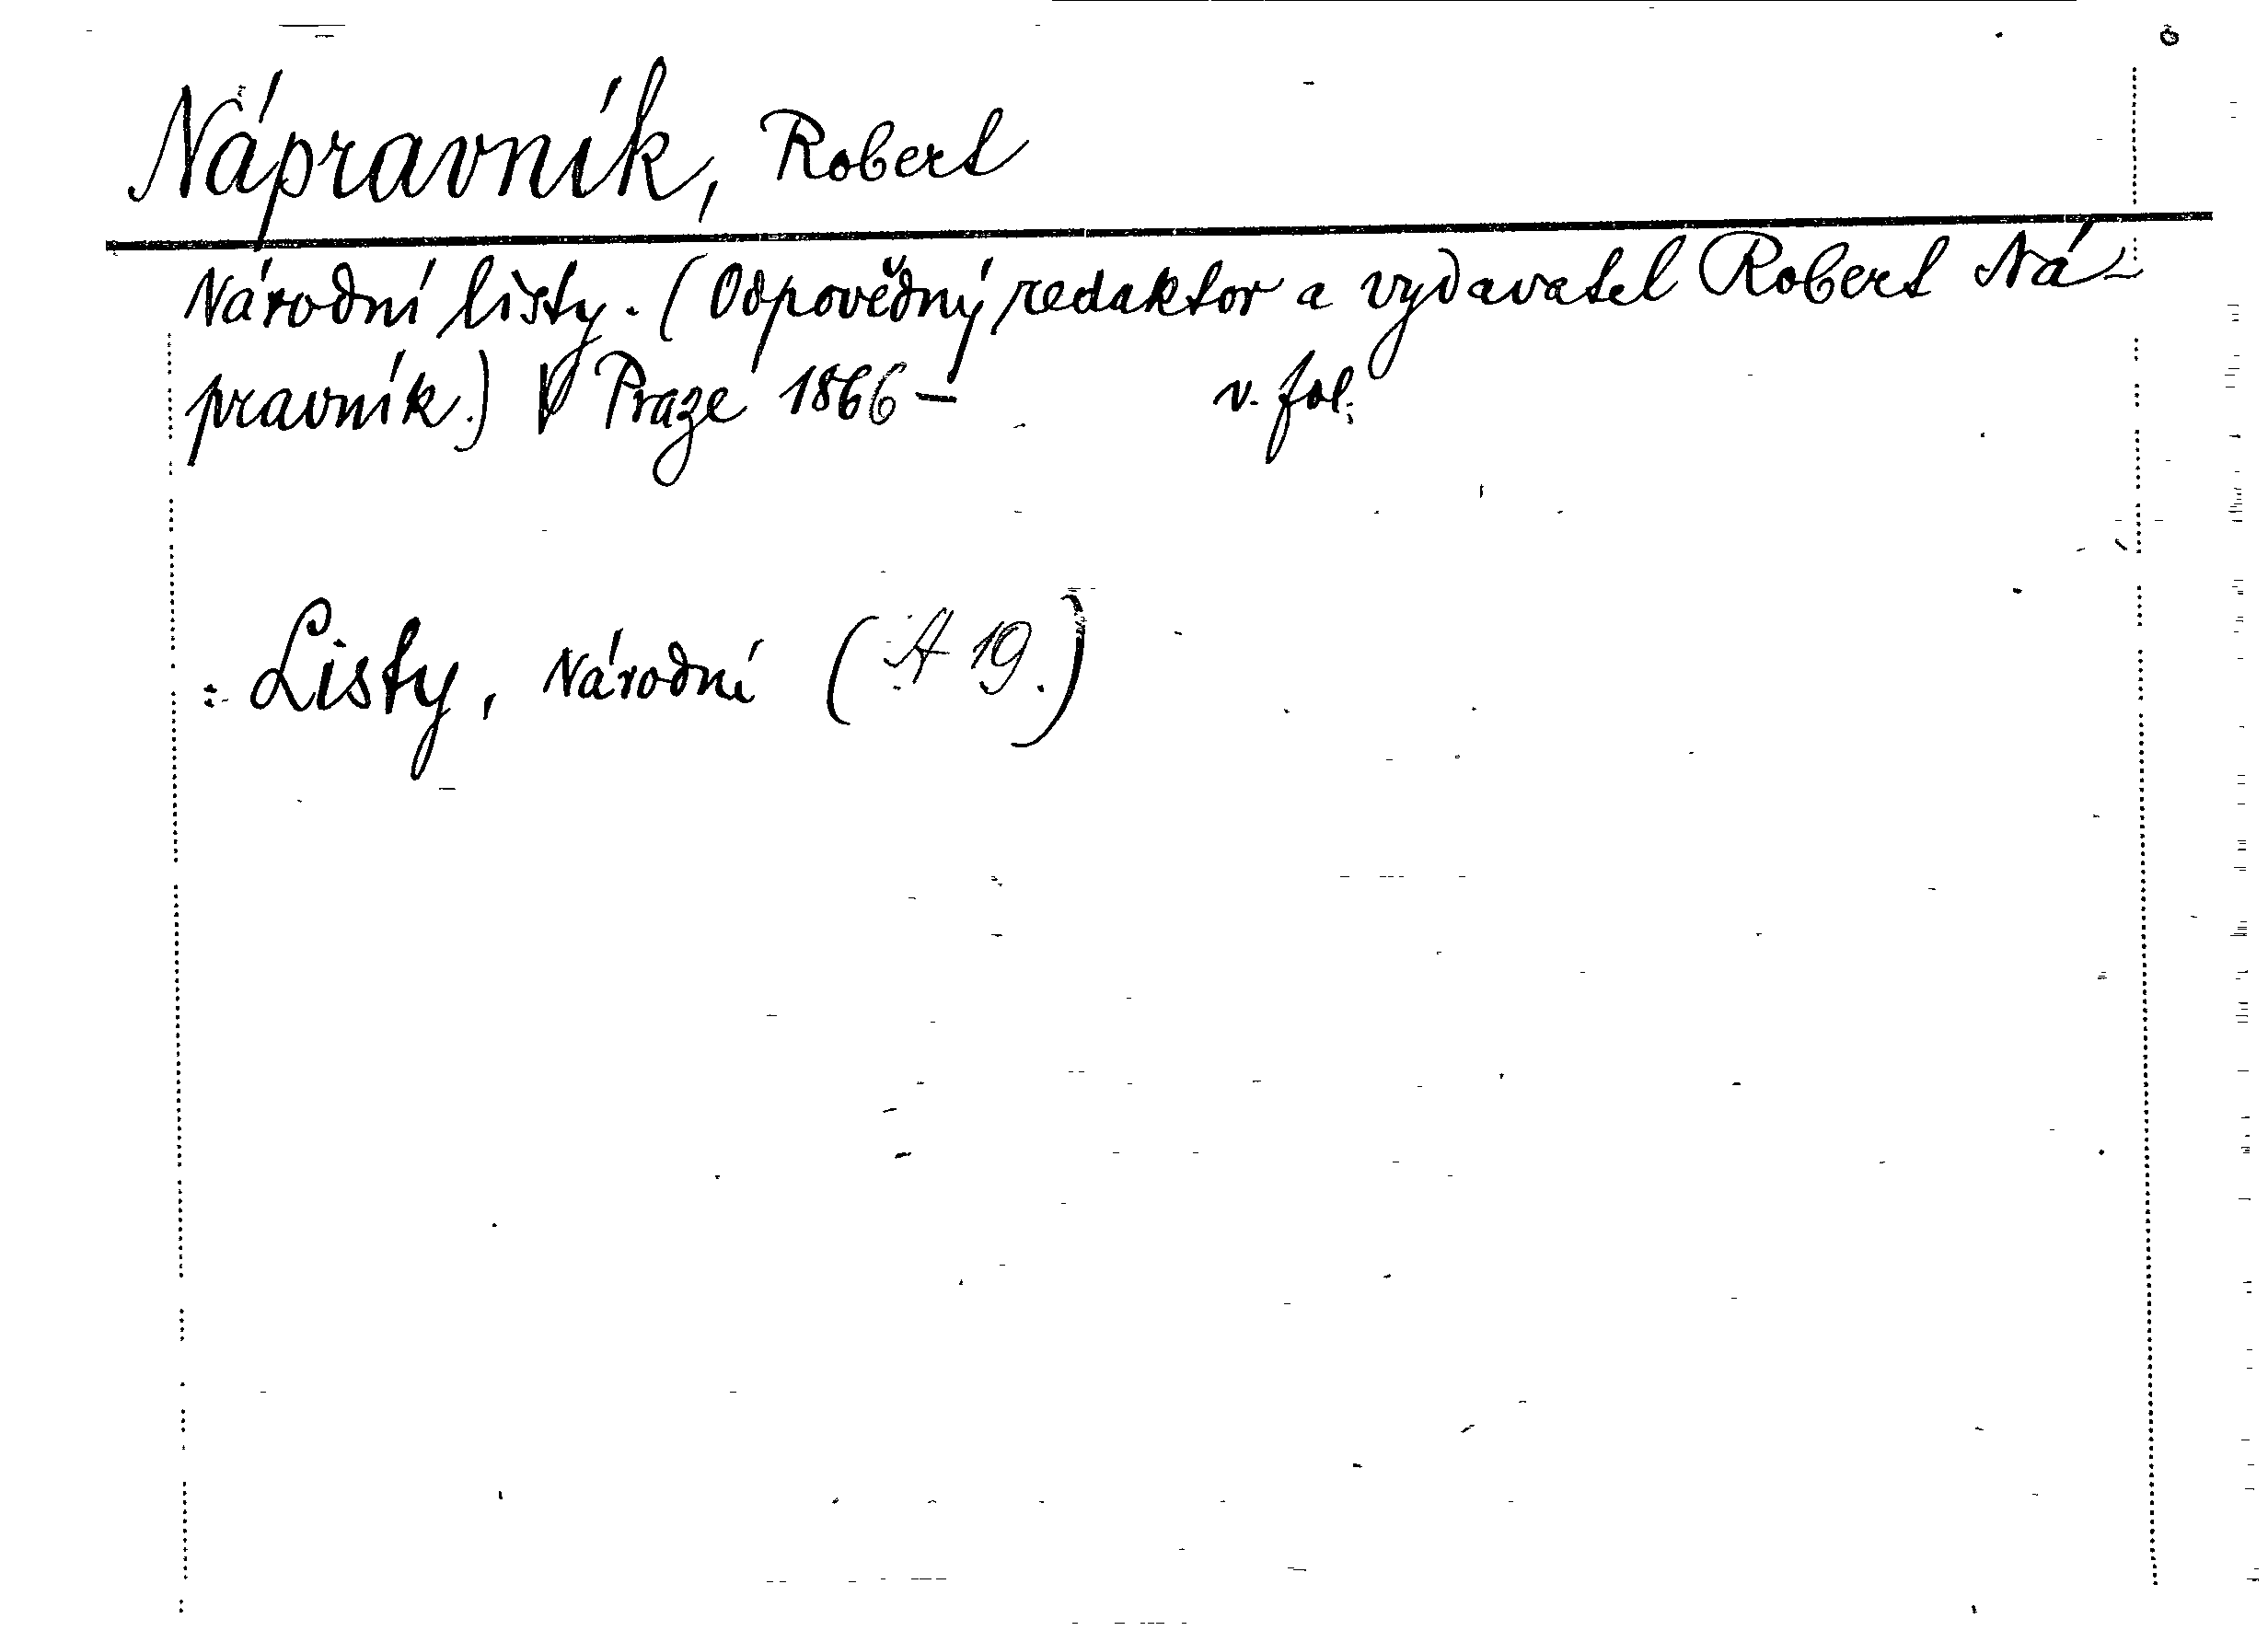 Nápravník, Robert
Národní listy. (Odpovědný redaktor a vydavatel Robert Ná-
pravník.) V Praze 1866 – v. fol.
: Listy, Národní (A 19.)